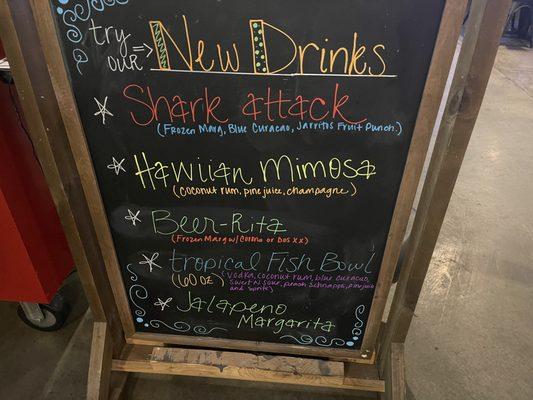 try our ⇒ New Drinks
Shark attack
(Frozen Marg, Blue Curacao, Jarritos Fruit Punch.)
Hawiian Mimosa
(coconut rum, pine juice, champagne)
Beer-Rita
(Frozen Marg w/ Corona or Dos XX)
tropical Fish Bowl
(60 oz) (Vodka, coconut rum, blue curacao,
Sweet n sour, peach schnapps, pine juice
and sprite)
Jalapeno
Margarita